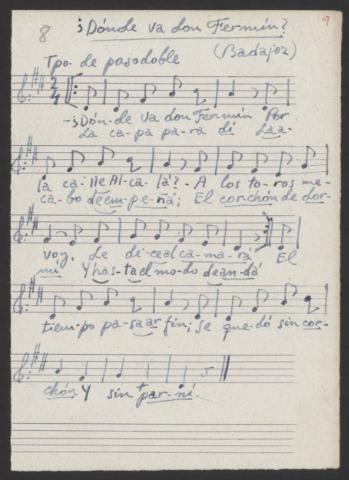 8 ¿Dónde va don Fermín? 9
(Badajoz)
Tpo. de pasodoble
2
4
-¿Dón-de va don Fer-mín Por
La ca-pa pa-ra di Laa-
la ca-lle Al-ca-lá? - A los to-ros me
ca-bo deem-pe-ñá; El cor-chón de dor-
voy, Le di-ceal ca-ma-rá El
mí Y has-tael mo-do dean-dá
tiem-po pa-saar fin; se que-dó sin cor-
chón Y sin par-ní.